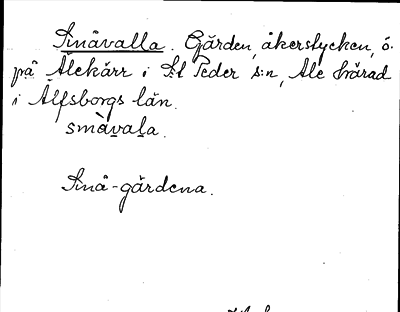 Småvalla. Gården, åkerstycken, ö.
på Alekärr i S:t Peder s:n, Ale härad
i Älfsborgs län.
smàvala.
Små-gärdena.